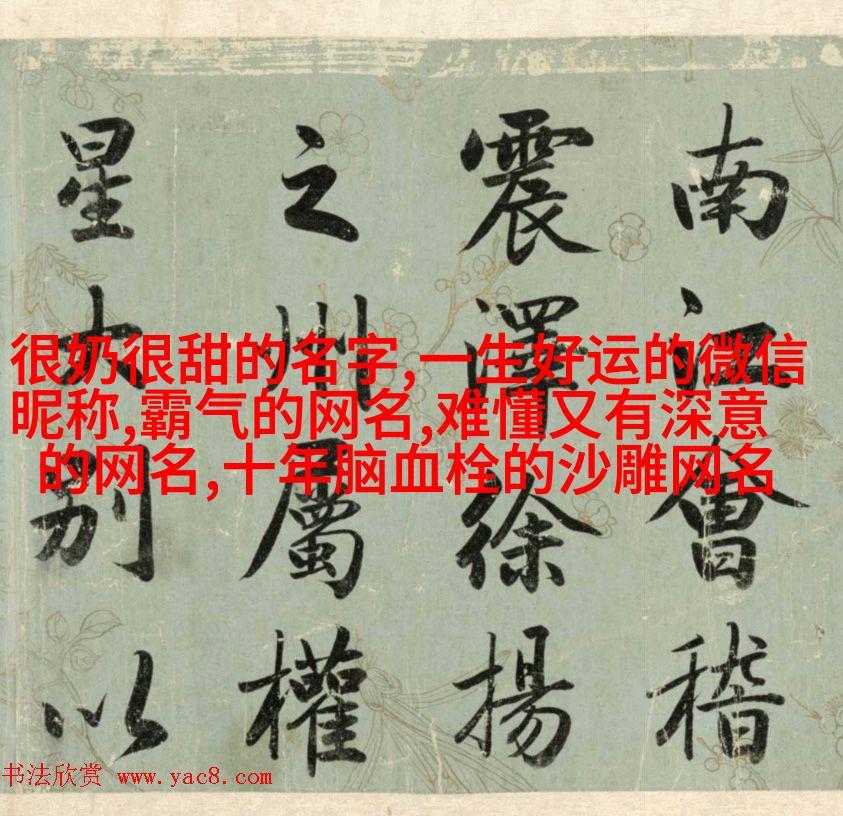 南江會稽
震澤徐揚
之州屬權
星大別以
很奶很甜的名字,一生好运的微信
昵称,霸气的网名,难懂又有深意
的网名,十年脑血栓的沙雕网名
书法欣赏 www.yac8.com